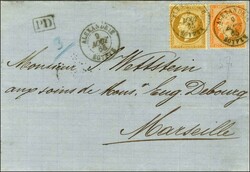 PD
ALEXANDRIE
EGYPTE
Monsieur J. Wettstein
aux soins de Mons. Eug Debourg
Marseille